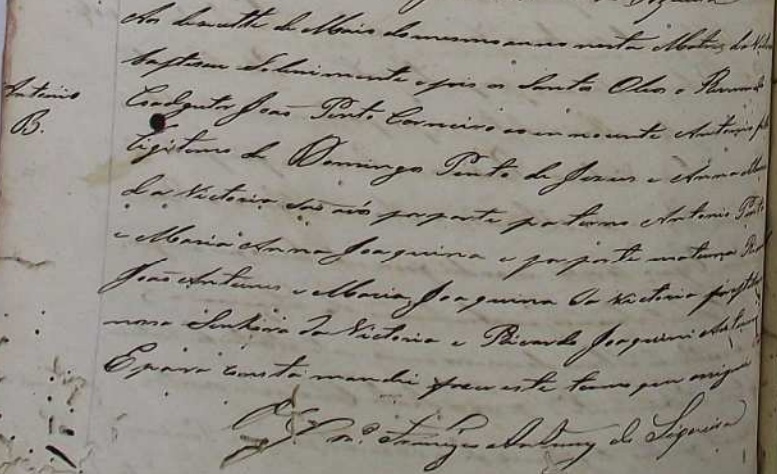 Aos de Maio do mesmo anno nesta Matriz da
baptisou Solenimente e pos os Santos Oleos o
Antonio
B.
Coadjutor João Pinto Carneiro ao innocente Antonio
legitimo de Domingos Pinto de Jezus e Anna Maria
da Victoria são avós por parte paterno Antonio Pinto
e Maria Anna Joaquina e por parte materna
João Antunes e Maria Joaquina da Victoria
nossa Senhora da Victoria e Ricardo Joaquim
E para constar mandei fazer este termo que assignei
Antunes de Siqueira